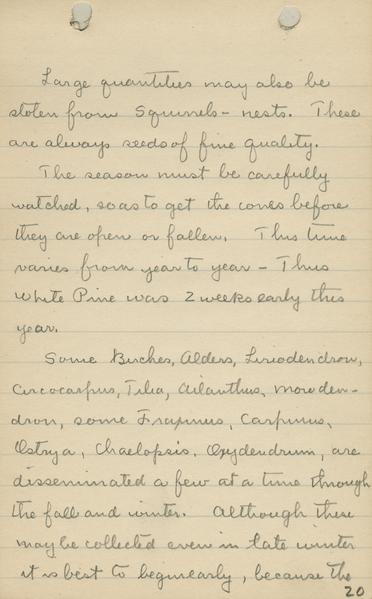 Large quantities may also be
stolen from Squirrels - nests. These
are always seeds of fine quality.
The season must be carefully
watched, so as to get the cones before
they are open or fallen. This time
varies from year to year - Thus
White Pine was 2 weeks early this
year.
Some Birches, Alders, Liriodendron,
Cercocarpus, Tilia, Ailanthus,
dron, some Fraxinus, Carpinus,
Ostrya, Oxydendrum, are
disseminated a few at a time through
the fall and winter. Although these
may be collected even in late winter
it is best to begin early, because the
20